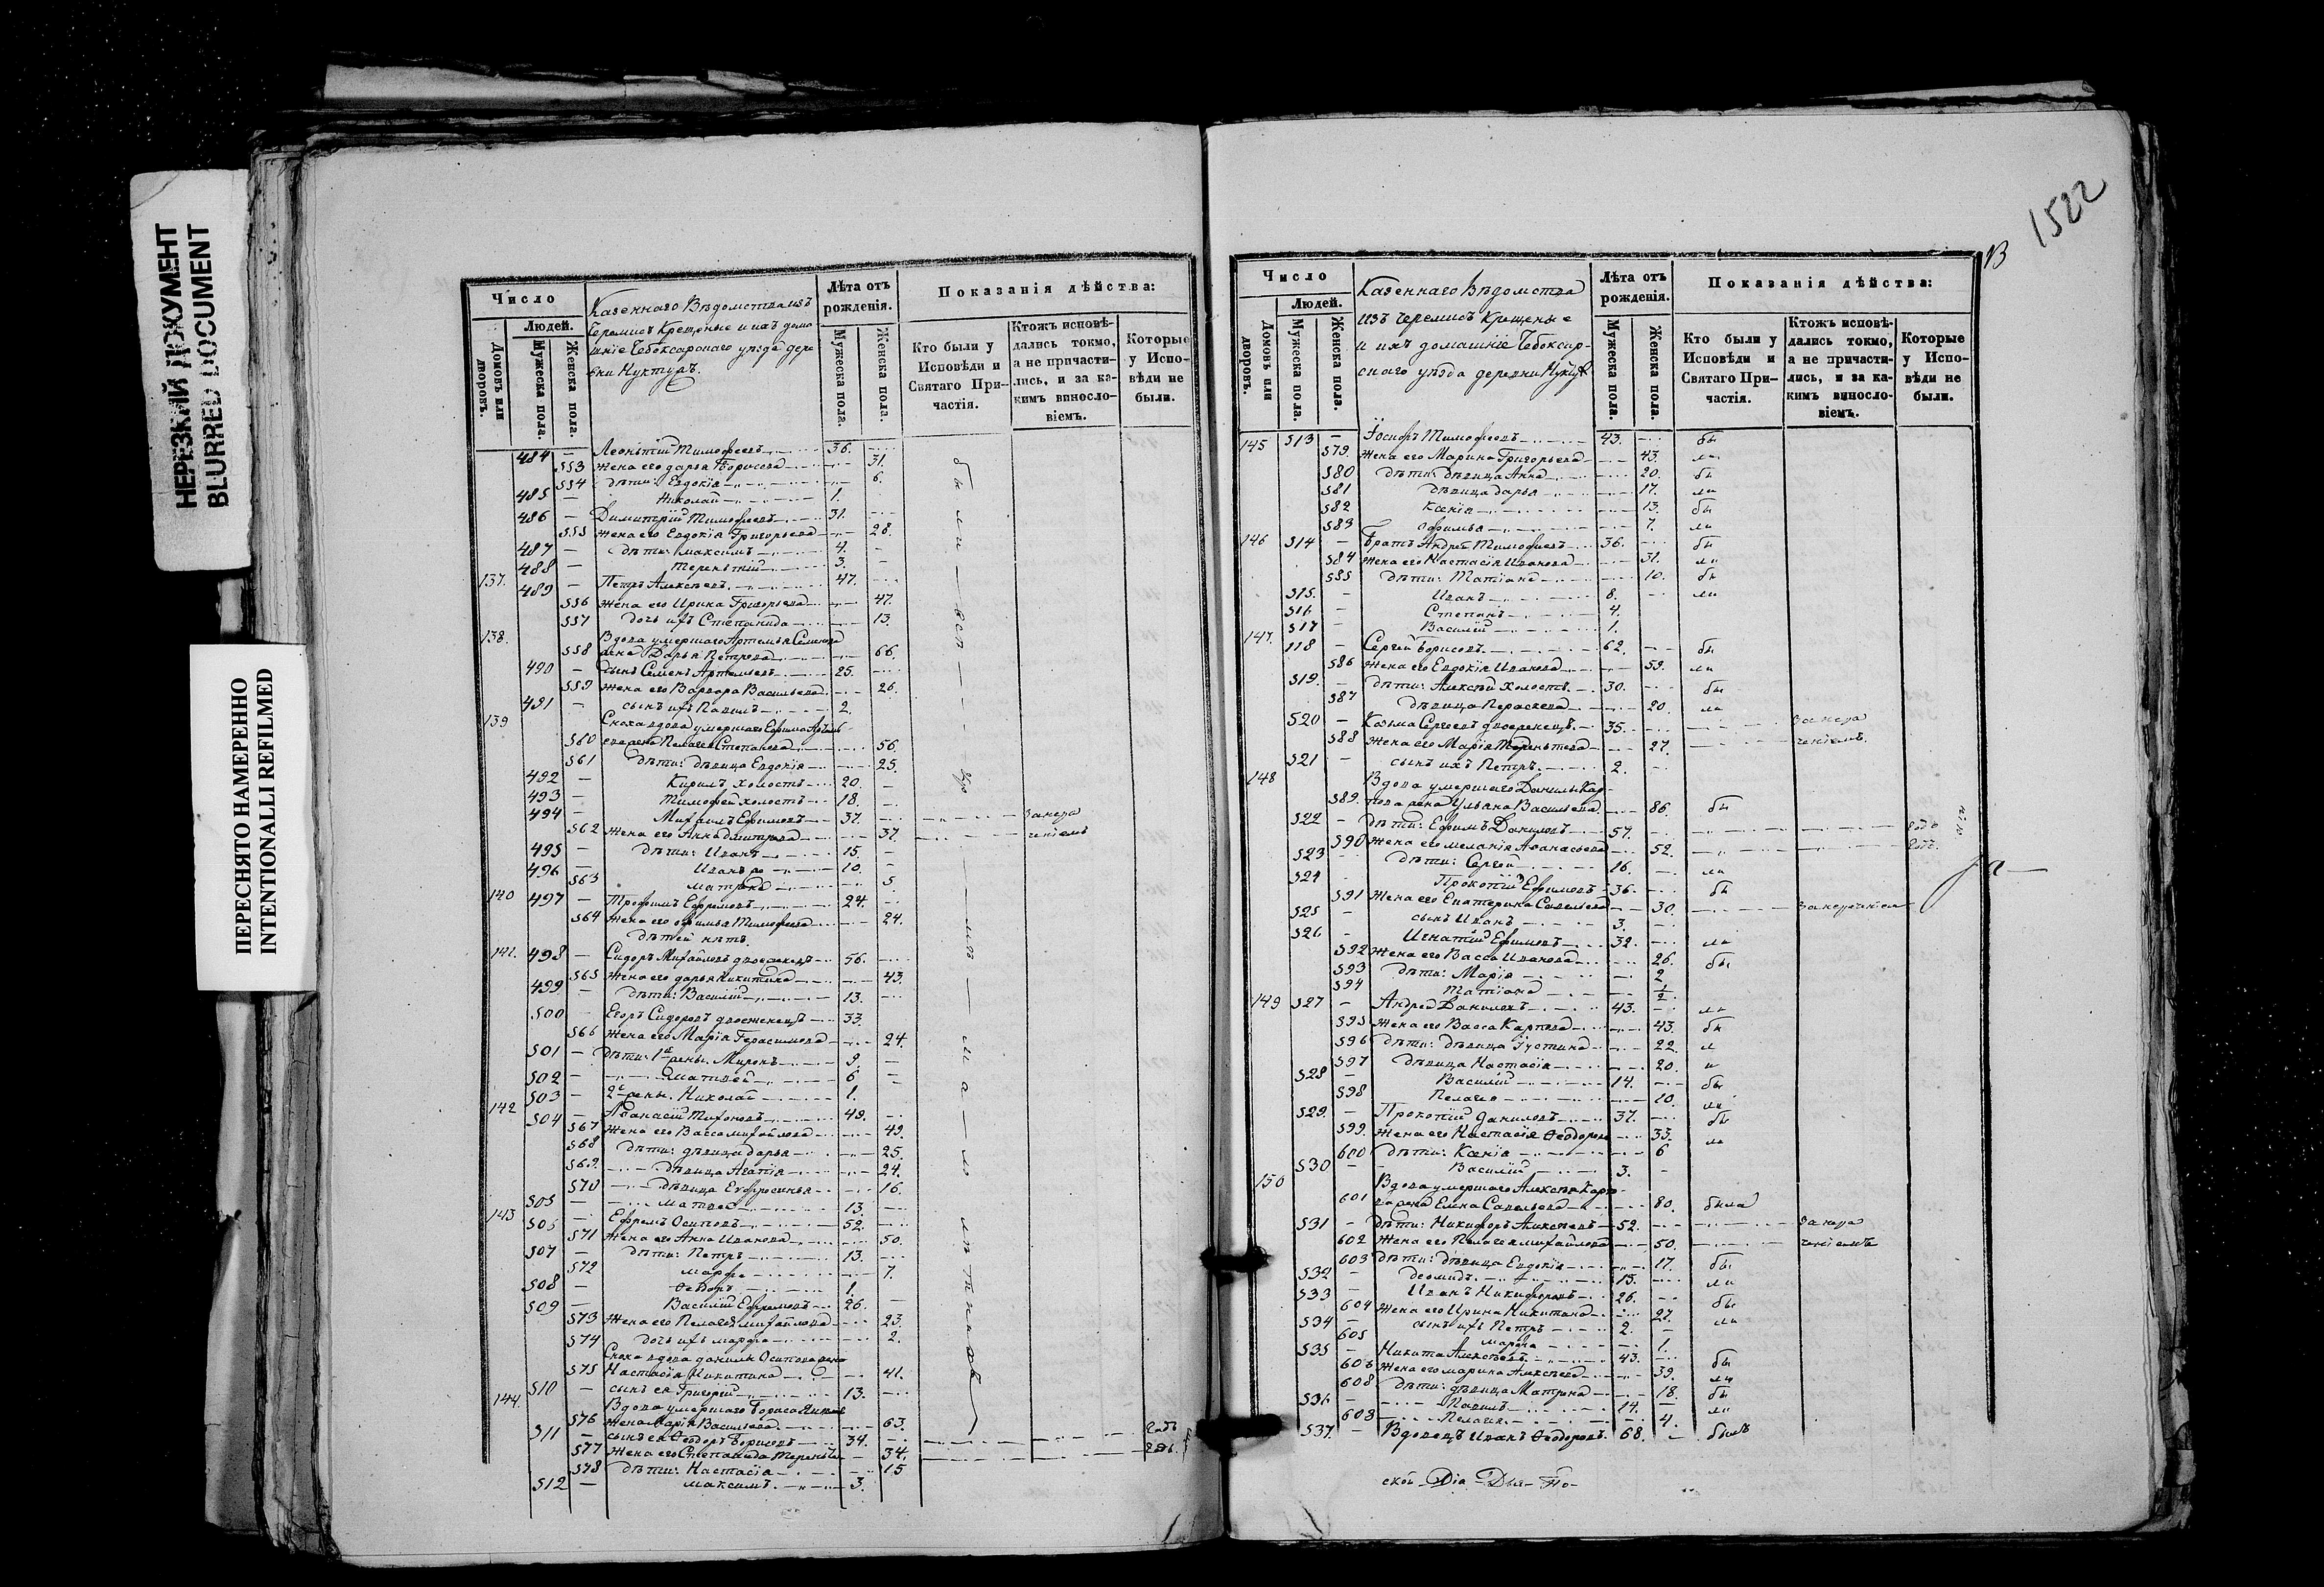 НЕРЕЗКИЙ ДОКУМЕНТ
BLURRED DOCUMENT
ПЕРЕСНЯТО НАМЕРЕННО
INTENTIONALLI REFILMED
Число
Людей.
Домовъ или дворовъ.
Мужеска пола.
Женска пола.
Казеннаго Вѣдомства изъ
Черемисъ Крещеные и ихъ дома
шніе Чебоксарскаго уѣзда дере
вни
Лѣта отъ рожденія.
Мужеска пола.
Женска пола.
Показанія дѣйства:
Кто были у Исповѣди и Святаго При-частія.
Ктожъ исповѣ-дались токмо, а не причасти-лись, и за ка-кимъ винословіемъ.
Которые у Испо-вѣди не были.
484 — Леонтій Тимофеевъ 36.
553 Жена его Дарья Борисова 31.
554 дѣти: Евдокія 6.
485 — Николай 1.
486 — Димитрій Тимофеевъ 31.
555 Жена его Евдокія Григорьева 28.
487 — дѣти: Максимъ 4.
488 — Терентій 3.
137. 489 — Петръ Алексѣевъ 47.
556 Жена его Ирина Григорьева 47.
557 дочь ихъ Степанида 13.
138. Вдова умершаго Артемья Семенова
558 жена Дарья Петрова 66.
490 — Сынъ Семенъ Артемьевъ 25.
559 Жена его Варвара Васильева 26.
491 — сынъ ихъ Павелъ 2.
139 Сноха вдова умершаго Ефима
560 жена Пелагея Степанова 56.
561 Дѣти: дѣвица Евдокія 25.
492 — Кирилъ холостъ 20.
493 — Тимофей холостъ 18.
494 — Михаилъ Ефимовъ 37. за нера
562 Жена его Анна Дмитріева 37. ченіемъ
495 — дѣти: Иванъ 15.
496 — Иванъ 10.
563 Матрена 5.
140 497 — Трофимъ Ефремовъ 24.
564 Жена его Офимья Тимофеева 24.
дѣтей нѣтъ.
141. 498 — Сидоръ Михайловъ двоеженецъ 56.
565 Жена его Дарья Никитина 43.
499 — дѣти: Василій 13.
500 — Егоръ Сидоровъ двоеженецъ 33.
566 Жена его Марія Герасимова 24.
501 — Дѣти: 1й жены. Миронъ 9.
502 — Матвей 6
503 — 2й жены. Николай 1.
142 504 — Афанасій 49.
567 Жена его Васса Михайлова 49.
568 дѣти: дѣвица Дарья 25.
569. дѣвица Агапія 24.
570 дѣвица Евфросинья 16.
505 — Матвей 13.
143 506 — Ефремъ Осиповъ 52.
571 Жена его Анна Иванова 50.
507 — дѣти: Петръ 13.
572 Марфа 7.
508 — Ѳедоръ 1.
509 — Василій Ефремовъ 26.
573 Жена его Пелагея Михайлова 23.
574 дочь ихъ Марфа 2.
Сноха вдова Данилы Осипова жена
575 Настасія Никитина 41.
510 — сынъ ея Григорій 13.
144. Вдова умершаго Бориса
576 Жена Марія Васильева 63.
511 — сынъ ея Ѳедоръ Борисовъ 34.
577 Жена его Степанида 34.
578 дѣти: Настасія 15
512 — Максимъ. 3.
1522
Число
Людей.
Домовъ или дворовъ.
Мужеска пола.
Женска пола.
Казеннаго Вѣдомства
изъ черемисъ Крещеные
и ихъ домашніе Чебоксар-
скаго уѣзда деревни
Лѣта отъ рожденія.
Мужеска пола.
Женска пола.
Показанія дѣйства:
Кто были у Исповѣди и Святаго При-частія.
Ктожъ исповѣ-дались токмо, а не причасти-лись, и за ка-кимъ винословіемъ.
Которые у Испо-вѣди не были.
145 513 — Іосифъ Тимофеевъ 43. бы
579. Жена его Марина Григорьева 43. ли
580 дѣти: дѣвица Анна 20. бы
581 дѣвица Дарья 17. ли
582 Ксенія 13. бы
583 Офимья 7. ли
146 514 — Братъ Андрей Тимофеевъ 36. бы
584 Жена его Настасія Иванова 31. ли
585 дѣти: Татіана 10. бы
515. — Иванъ 8. ли
516 — Степанъ 4.
517 — Василій 1.
147. 118 — Сергей Борисовъ 62. бы
586 Жена его Евдокія Иванова 59. ли
519. — дѣти: Алексѣй холостъ 30. бы
587 дѣвица Параскева 20. ли
520 — Козьма Сергеевъ двоеженецъ 35. за нера
588 Жена его Марія Терентьева 27. ченіемъ.
521 — сынъ ихъ Петръ 2.
148 Вдова умершаго Данилы Кар-
589. пова жена Ульяна Васильева 86. бы
522 — Дѣти: Ефимъ Даниловъ 57.
590 Жена его Меланія Афанасьева 52.
523 — дѣти: Сергей 16. ли
524 — Прокопій Ефимовъ 36. бы
591 Жена его Екатерина Савельева 30. за нераченіем
525 — сынъ Иванъ 3.
526 — Игнатій Ефимовъ 32. ли
592 Жена его Васса Иванова 26. бы
593 дѣти: Марія 2
594 Татіана 1/2.
149 527 — Андрей Даниловъ 43. ли
595 Жена его Васса Карпова 43. бы
596 дѣти: дѣвица Іустина 22. л
597 дѣвица Настасія 20. и
528 — Василій 14. бы
598 Пелагея 10. ли
529. — Прокопій Даниловъ 37. бы
599. Жена его Настасія Ѳеодорова 33. ли
600 дѣти: Ксенія 6
530 — Василій 3.
150 Вдова умершаго Алексѣя Карпо-
601 ва жена Елена Савельева 80. была
531 — дѣти: Никифоръ Алексѣевъ 52. за нера
602 Жена его Пелагея Михайлова 50. ченіемъ
603 дѣти: дѣвица Евдокія 17. бы
532 — Деомидъ 15. ли
533 — Иванъ Никифоровъ 26. бы
604 Жена его Ирина Никитина 27. ли
534 — сынъ ихъ Петръ 2.
605 Марфа 1.
535 — Никита Алексѣевъ 43. бы
606 Жена его Марина Алексѣева 39. ли
608 дѣти: дѣвица Матрена 18. бы
536 — Павелъ 14. ли
608 Пелагея 4.
537. — Вдовецъ Иванъ Ѳеодоровъ 68. былъ
ской Діа Дья- По-